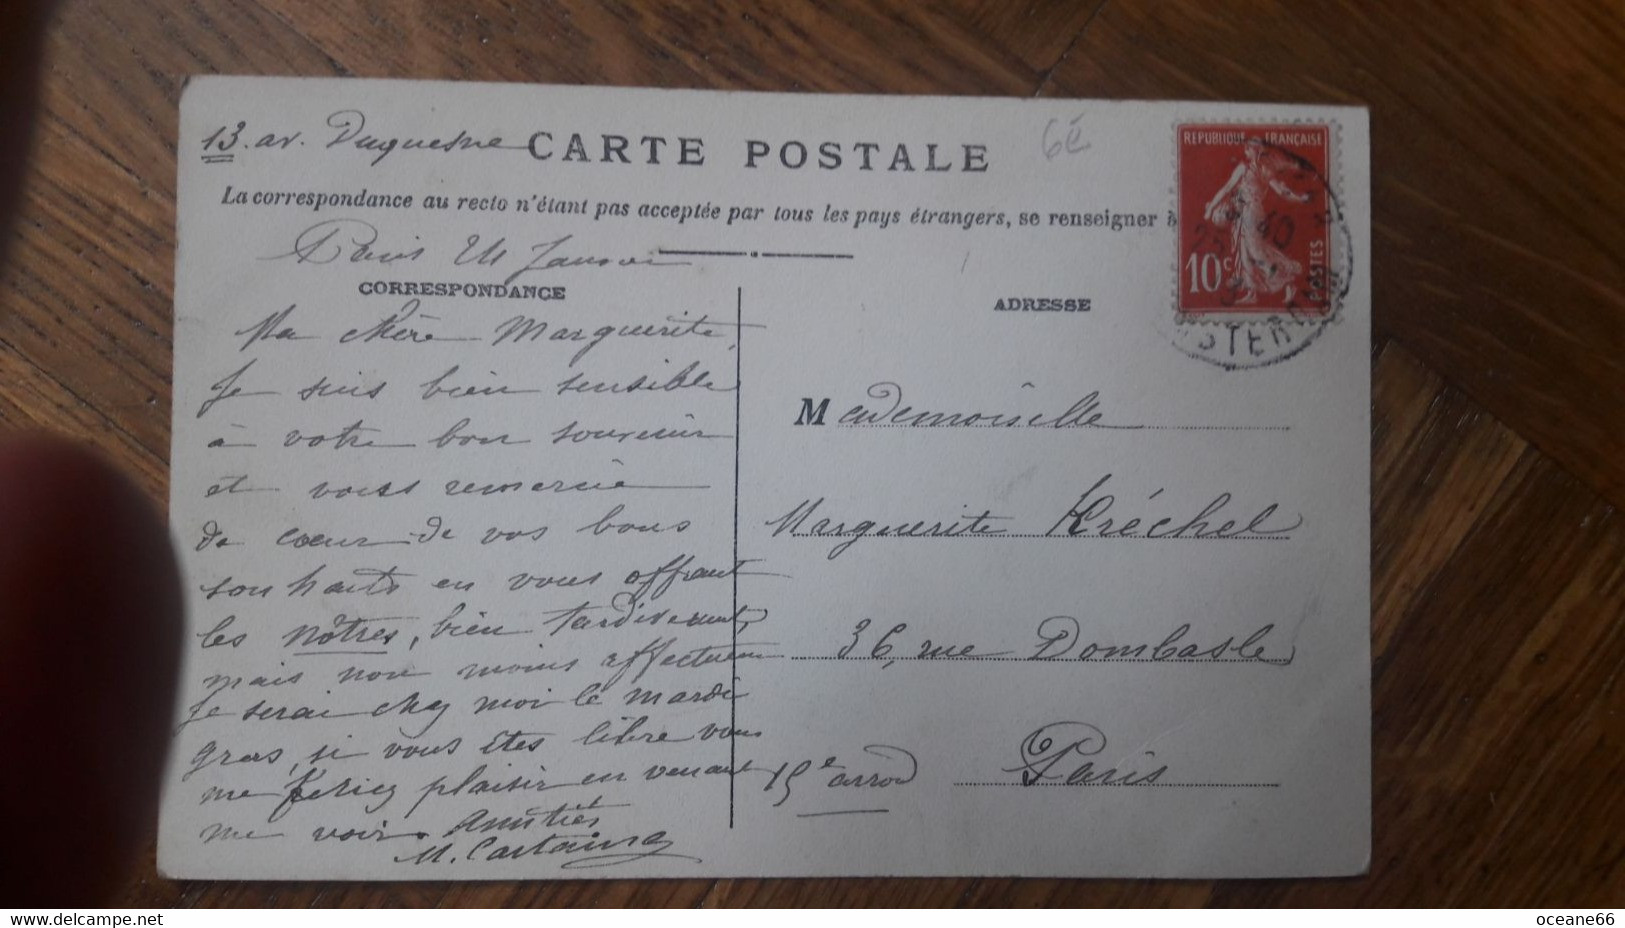 13. av. Duquesne
CARTE POSTALE
6€
La correspondance au recto n'étant pas acceptée par tous les pays étrangers, se renseigner à
Paris 24 Janvier
CORRESPONDANCE
Ma chère Marguerite,
Je suis bien sensible
à votre bon souvenir
et vous remercie
de cœur de vos bons
souhaits en vous offrant
les nôtres, bien tardivement,
mais non moins affectueux
Je serai chez moi le mardi
gras, si vous êtes libre vous
me feriez plaisir en venant
me voir. Amitiés
ADRESSE
Mademoiselle
Marguerite Kréchel
36, rue Dombasle
Paris
15e arrond
REPUBLIQUE FRANÇAISE
10c
POSTES
oldthing.com
delcampe.net
oceane66